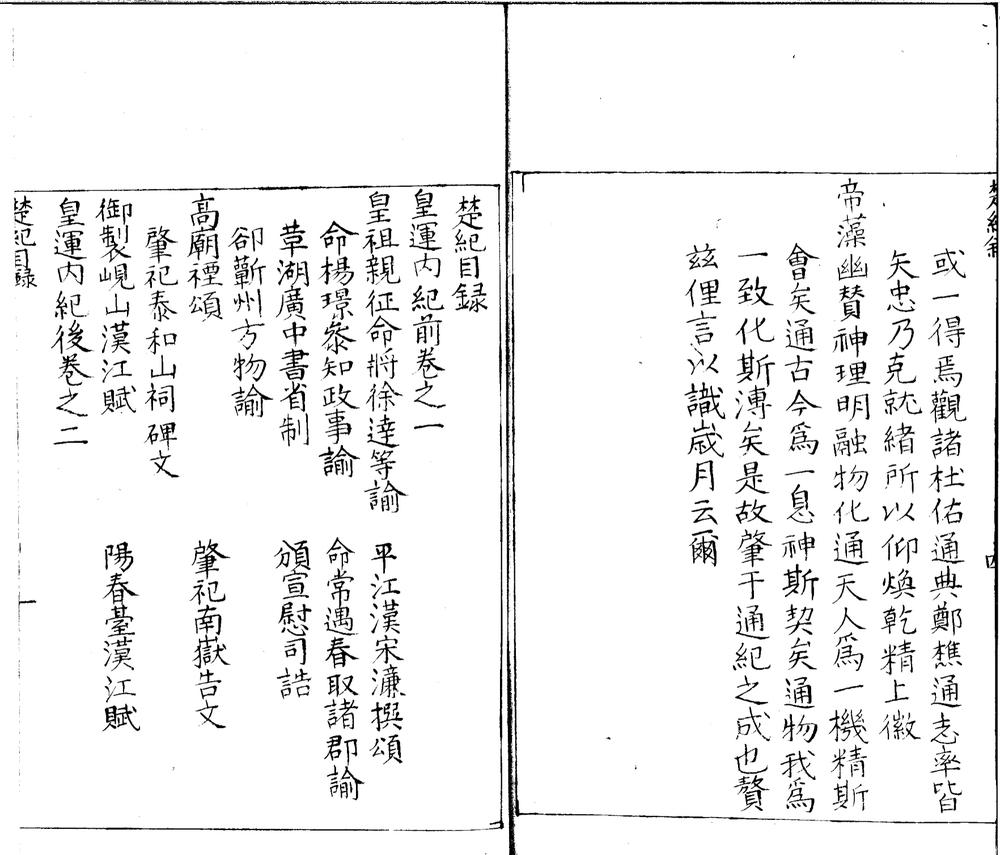 或一得焉觀諸杜佑通典鄭樵通志率皆
矢忠乃克就緒所以仰煥乾精上徽
帝藻幽賛神理明融物化通天人爲一機精斯
會矣通古今爲一息神斯契矣通物我爲
一致化斯溥矣是故肇于通紀之成也贅
兹俚言以識歲月云爾
四
楚紀目録
皇運内紀前卷之一
皇祖親征命將徐達等諭 平江漢宋濂撰頌
命楊璟叅知政事諭 命常遇春取諸郡諭
革湖廣中書省制 頒宣慰司誥
卻蘄州方物諭
高廟禋頌 肇祀南嶽告文
肇祀泰和山祠碑文
御製峴山漢江賦 陽春臺漢江賦
皇運内紀後卷之二
楚紀目録 一